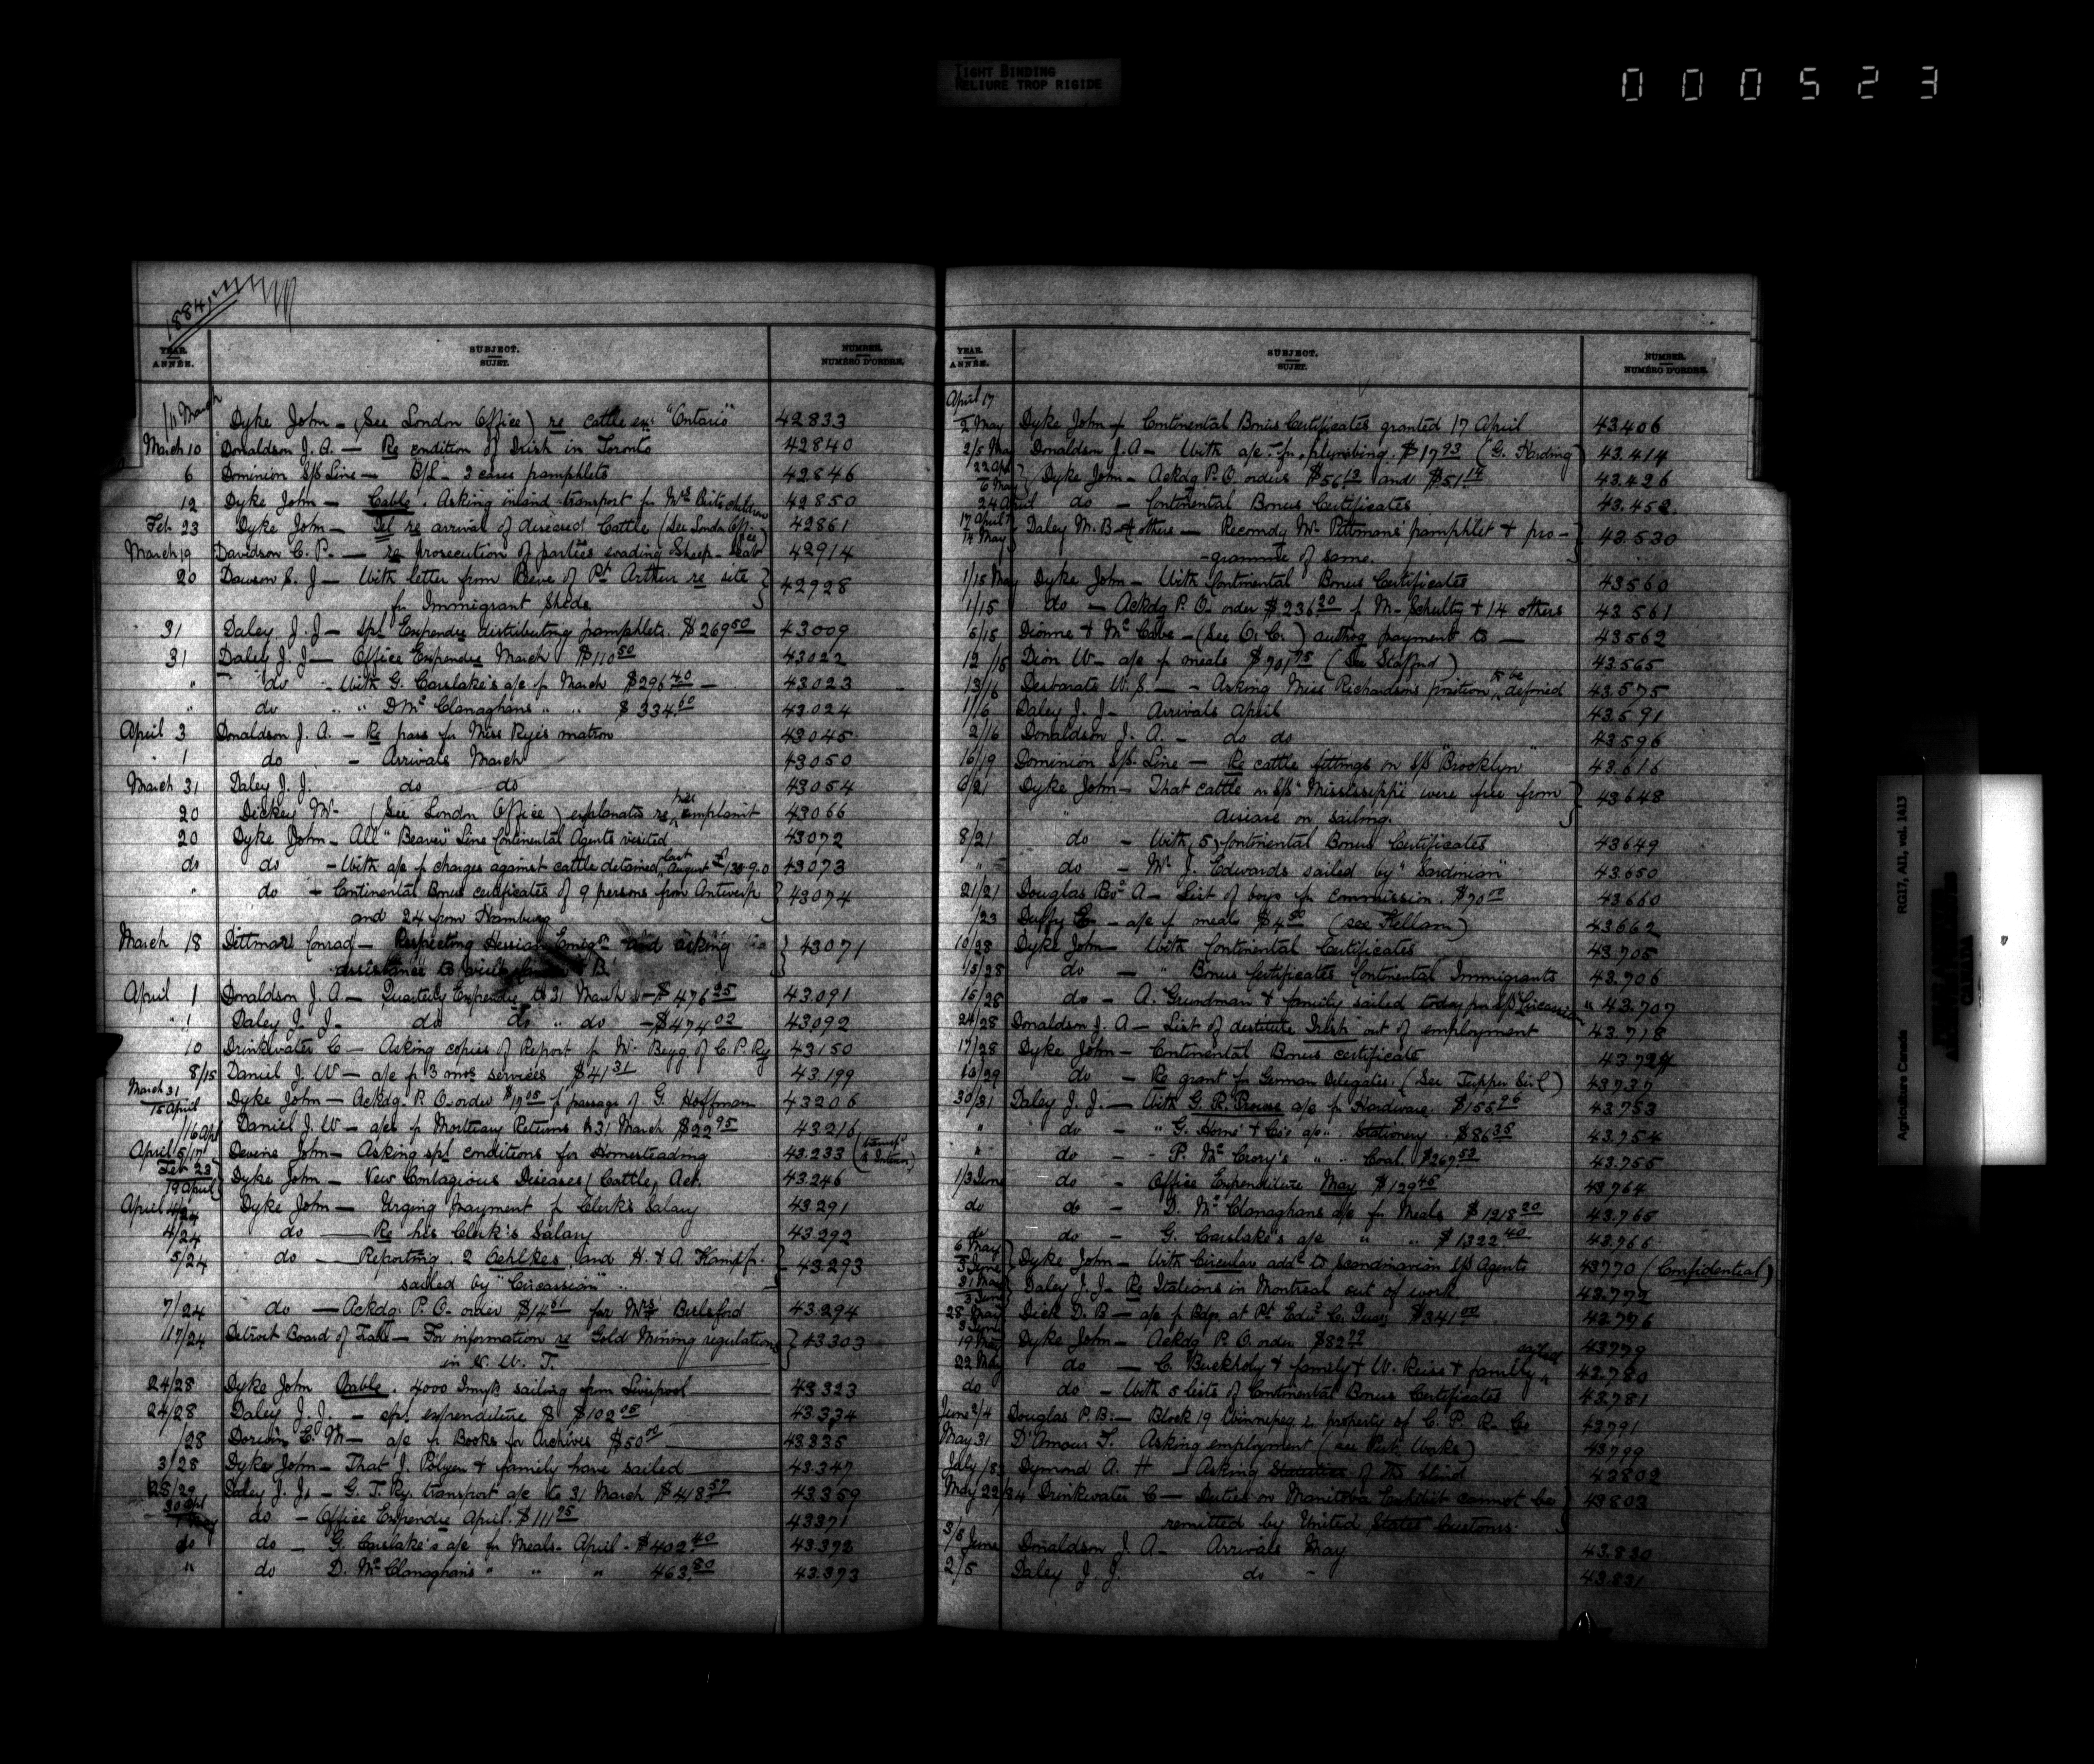 TIGHT BINDING
RELIURE TROP RIGIDE
000523
1884
YEAR. ANNÉE. SUBJECT. SUJET. NUMBER. NUMÉRO D'ORDRE.
/11 March Dyke John - (See London Office) re cattle ex "Ontario" 42833
March 10 Donaldson J. A. - Re condition of Irish in Toronto 42840
6 Dominion S/S Line - B/L - 3 cases pamphlets 42846
12 Dyke John - Cable. Asking inland transport for Mrs children 42850
Feb 23 Dyke John - Tel re arrival of diseased Cattle (See London Office) 42861
March 19 Davidson C. P. - re prosecution of parties evading Sheep-Scab 42914
20 Dawson S. J - With letter from Reeve of Pt Arthur re site 42928
for Immigrant Sheds
31 Daley J. J - Spl Expendre distributing pamphlets. $269 50 43009
31 Daley J. J - Office Expendre March $110 50 43022
" do - With G. Carslake's a/c f March $296 40 - 43023
" do " " D Mc Clanaghans " " $334. 60 43024
April 3 Donaldson J. A. - Re pass for Miss Rye's matron 43045
" 1 do - Arrivals March 43050
March 31 Daley J. J. do do 43054
20 Dickey Mr (See London Office) explanats re her complaint 43066
20 Dyke John - All "Beaver" Line Continental Agents visited 43072
do do - With a/c f charges against cattle detained last August £130-9-0 43073
" do - Continental Bonus certificates of 9 persons from Antwerp 43074
and 24 from Hamburg
March 18 Dittmars Conrad - Respecting Hessian Emigrn and asking 43071
assistance to
April 1 Donaldson J. A - Quarterly Expendre to 31 March - $476 95 43.091
" 1 Daley J. J. - do do " do - $474 02 43.092
10 Drinkwater C - Asking copies of Report f Mr Begg of C. P. Ry 43150
8/15 Daniel J. W - a/c f 3 mos services $41 31 43.199
March 31 / 15 April Dyke John - Ackdg. P. O. order $19 05 f passage of G Hoffman 43206
/16 Apl Daniel J. W - a/c f Mortuary Returns to 31 March $22 95 43.216
April 5/17 Devine John - Asking spl conditions for Homesteading 43.233 (transf to Interior)
Feb 23 / 19 April Dyke John - New Contagious Diseases (Cattle) Act. 43.246
April 4/24 Dyke John - Urging payment f Clerk's Salary 43.291
4/24 do - Re his Clerk's Salary 43.292
5/24 do - Reporting. 2 Oehlkes and H. & A. Kampf 43.293
sailed by "Circassian"
7/24 do - Ackdg. P. O. order $14 61 for Mrs Berlsford 43.294
17/24 Detroit Board of Trade - For information re Gold Mining regulations 43303
in N. W. T.
24/28 Dyke John Cable. 4000 Immgts sailing from Liverpool 43323
24/28 Daley J. J. - spl expenditure $102 05 43.334
/28 Dorwin C. M - a/c f Books for Archives $50 00 43335
3/28 Dyke John - That J. Polyen & family have sailed 43.347
28/29 Daley J. J. - G. T. Ry. transport a/c to 31 March $418. 57 43.359
30 Apl / 1 May do - Office Expendre April. $111 95 43371
do do - G. Carslake's a/c for Meals. April - $402. 40 43.372
" do D. Mc Clanaghan's " " " 463. 80 43.373
YEAR. ANNÉE. SUBJECT. SUJET. NUMBER. NUMÉRO D'ORDRE.
April 17 / 2 May Dyke John - Continental Bonus Certificates granted 17 April 43.406
2/5 May Donaldson J. A - With a/c for plumbing. $17 93 (G. Harding) 43.414
22 Apl / 6 May Dyke John - Ackdg P. O. orders $56 12 and $51. 14 43.426
24 April do - Continental Bonus Certificates 43.452
17 April / 14 May Daley M. B & others - Recomdg Mr Pittman's pamphlet & pro- 43.530
-gramme of same.
1/15 May Dyke John - With Continental Bonus Certificates 43560
1/15 do - Ackdg P. O. order $236 20 f M. Schulty & 14 others 43.561
5/15 Dionne & Mc Cabe - (See O. C.) authog payment to - 43562
12/15 Dion W - a/c f meals $701 75 (See Stafford) 43.565
13/16 Desbarats W. S. - Asking Miss Richardsons position to be defined 43.575
1/16 Daley J. J - Arrivals April 43.591
2/16 Donaldson J. A. - do do 43596
16/19 Dominion S/S. Line - Re cattle fittings on S/S "Brooklyn" 43.616
6/21 Dyke John - That cattle on S/S "Mississippi" were free from 43648
disease on sailing.
8/21 do - With 5 Continental Bonus Certificates 43649
" do - Mr J. Edwards sailed by "Sardinian" 43.650
21/21 Douglas Revd A - List of boys f commission. $70 00 43660
/23 Duffy E. - a/c f meals $4 50 (see Kellam) 43662
10/28 Dyke John - With Continental Certificates 43.705
13/28 do - " Bonus Certificates Continental Immigrants 43.706
15/28 do - A. Grundman & family sailed today per S/S "Circassian" 43.707
24/28 Donaldson J. A - List of destitute Irish out of employment 43.718
17/28 Dyke John - Continental Bonus certificate 43.724
10/29 do - Re grant for German Delegates. (See Tupper Sir C) 43737
30/31 Daley J. J. - With G. R. Prowse a/c f Hardware $155 96 43753
" do - " G. Horne & Co's a/c " Stationery. $86 35 43.754
" do - " P. Mc Crory's " " Coal $269 53 43.755
1/3 June do - Office Expenditure May $129 45 43764
do do - D. Mc Clanaghans a/c for Meals $1218 20 43.765
do do - G. Carslake's a/c " " $1322. 40 43.766
6 May / 3 June Dyke John - With Circular addd to Scandinavian S/S Agents 43770 (Confidential)
31 May / 3 June Daley J. J - Re Italians in Montreal out of work 43.772
28 May / 3 June Dick D. B - a/c f Bdgs at Pt Edwd $341 00 43776
19 May Dyke John - Ackdg P. O. order $82 79 43779
22 May do - C. Buckholy & family & W. Reiss & family sailed 43.780
do do - With 5 lists of Continental Bonus Certificates 43.781
June 2/4 Douglas P. B. - Block 19 Winnipeg is property of C. P. R. Co 43791
May 31 D'Amour T. Asking employment (see Pub. Works) 43799
July /83 Dymond A. H - Asking Statistics of the blind 43802
May 22/24 Drinkwater C - Duties on Manitoba Exhibit cannot be 43803
remitted by United States Customs.
3/5 June Donaldson J. A - Arrivals May 43.830
2/5 Daley J. J. do - 43.831
Agriculture Canada RG17, AII, vol. 1413
CANADA